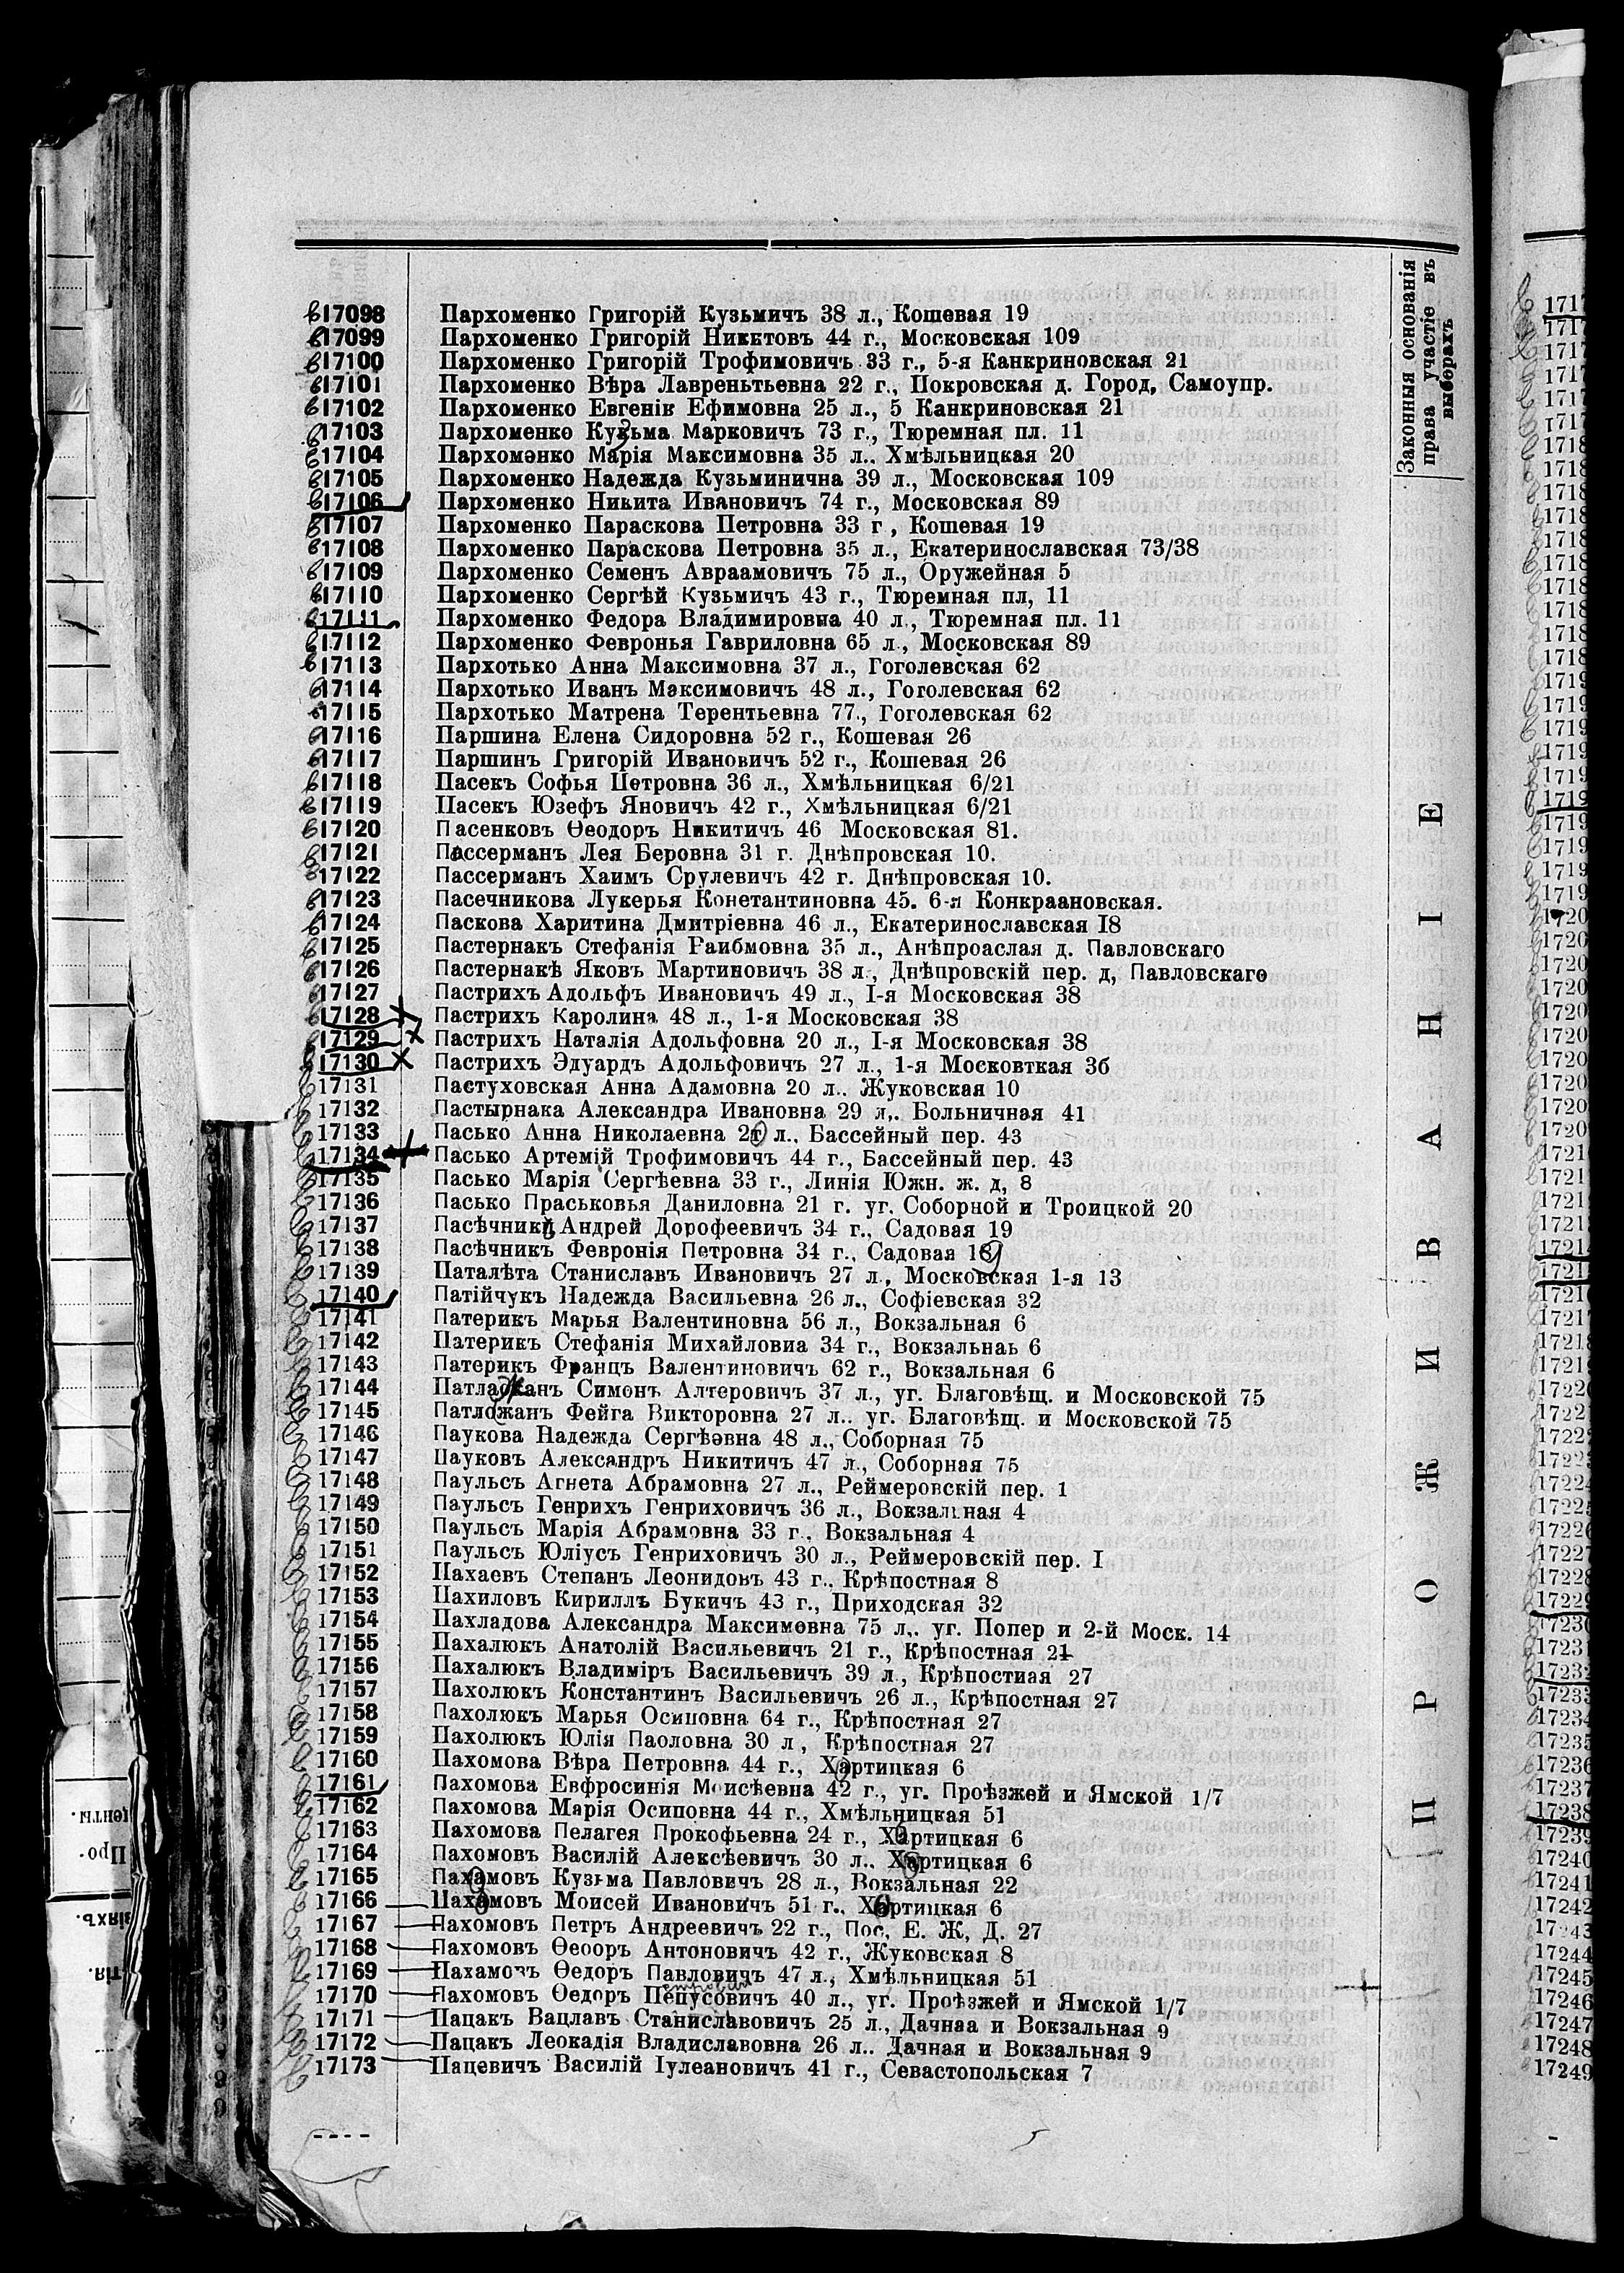 Законныя основанія
права участіе въ
выборахъ
ПРОЖИВАНІЕ
17098 Пархоменко Григорій Кузьмичъ 38 л., Кошевая 19
17099 Пархоменко Григорій Никитовъ 44 г., Московская 109
17100 Пархоменко Григорій Трофимовичъ 33 г., 5-я Канкриновская 21
17101 Пархоменко Вѣра Лавреньтьевна 22 г., Покровская д. Город, Самоупр.
17102 Пархоменко Евгенія Ефимовна 25 л., 5 Канкриновская 21
17103 Пархоменко Кузьма Марковичъ 73 г., Тюремная пл. 11
17104 Пархоменко Марія Максимовна 35 л.. Хмѣльницкая 20
17105 Пархоменко Надежда Кузьминична 39 л., Московская 109
17106 Пархоменко Никита Ивановичъ 74 г., Московская 89
17107 Пархоменко Параскова Петровна 33 г , Кошевая 19
17108 Пархоменко Параскова Петровна 35 л., Екатеринославская 73/38
17109 Пархоменко Семенъ Авраамовичъ 75 л., Оружейная 5
17110 Пархоменко Сергѣй Кузьмичъ 43 г., Тюремная пл, 11
17111 Пархоменко Федора Владимировна 40 л., Тюремная пл. 11
17112 Пархоменко Февронья Гавриловна 65 л., Московская 89
17113 Пархотько Анна Максимовна 37 л., Гоголевская 62
17114 Пархотько Иванъ Максимовичъ 48 л., Гоголевская 62
17115 Пархотько Матрена Терентьевна 77., Гоголевская 62
17116 Паршина Елена Сидоровна 52 г., Кошевая 26
17117 Паршинъ Григорій Ивановичъ 52 г., Кошевая 26
17118 Пасекъ Софья Петровна 36 л., Хмѣльницкая 6/21
17119 Пасекъ Юзефъ Яновичъ 42 г., Хмѣльницкая 6/21
17120 Пасенковъ Ѳеодоръ Никитичъ 46 Московская 81.
17121 Пассерманъ Лея Беровна 31 г. Днѣпровская 10.
17122 Пассерманъ Хаимъ Срулевичъ 42 г. Днѣпровская 10.
17123 Пасечникова Лукерья Конетантиновна 45. 6-я Конкраановская.
17124 Паскова Харитина Дмитріевна 46 л., Екатеринославская I8
17125 Пастернакъ Стефанія Раибмовна 35 л., Анѣпроаслая д. Павловскаго
17126 Пастернакѣ Яковъ Мартиновичъ 38 л., Днѣпровскій пер. д, Павловскаго
17127 Пастрихъ Адольфъ Ивановичъ 49 л., I-я Московская 38
17128 Пастрихъ Каролина 48 л., 1-я Московская 38
17129 Пастрихъ Наталія Адольфовна 20 л., I-я Московская 38
17130 Пастрихъ Эдуардъ Адольфовичъ 27 л., 1-я Московткая 3б
17131 Пастуховская Анна Адамовна 20 л.. Жуковская 10
17132 Пастырнака Александра Ивановна 29 л,. Больничная 41
17133 Пасько Анна Николаевна л., Бассейный пер. 43
17134 Пасько Артемій Трофимовичъ 44 г., Бассейный пер. 43
17135 Пасько Марія Сергѣевна 33 г., Линія Южн. ж. д, 8
17136 Пасько Праськовья Даниловна 21 г. уг. Соборной и Троицкой 20
17137 Пасѣчникъ Андрей Дорофеевичъ 34 г., Садовая 19
17138 Пасѣчникъ Февронія Петровна 34 г., Садовая 19
17139 Паталѣта Станиславъ Ивановичъ 27 л., Московская 1-я 13
17140 Патійчукъ Надежда Васильевна 26 л., Софіевская 32
17141 Патерикъ Марья Валентиновна 56 л., Вокзальная 6
17142 Патерикъ Стефанія Михайловиа 34 г., Вокзальнаь 6
17143 Патерикъ Францъ Валентиновичъ 62 г., Вокзальная 6
17144 Патлажанъ Симонъ Алтеровичъ 37 л., уг. Благовѣщ. и Московской 75
17145 Патлажанъ Фейга Викторовна 27 л.. уг. Благовѣщ. и Московской 75
17146 Паукова Надежда Сергѣевна 48 л., Соборная 75
17147 Пауковъ Александръ Никитичъ 47 л., Соборная 75
17148 Паульсъ Агнета Абрамовна 27 л., Реймеровскій пер. 1
17149 Паульсъ Генрихъ Генриховичъ 36 л., Вокзальная 4
17150 Паульсъ Марія Абрамовна 33 г., Вокзальная 4
17151 Паульсъ Юліусъ Генриховичъ 30 л., Реймеровскій пер. I
17152 Пахаевъ Степанъ Леонидовъ 43 г.. Крѣпостная 8
17153 Пахиловъ Кириллъ Букичъ 43 г., Приходская 32
17154 Пахладова Александра Максимовна 75 л,. уг. Попер и 2-й Моск. 14
17155 Пахалюкъ Анатолій Васильевичъ 21 г., Крѣпостная 21
17156 Пахалюкъ Владиміръ Васильевичъ 39 л., Крѣпостиая 27
17157 Пахолюкъ Константинъ Васильевичъ 26 л., Крѣпостная 27
17158 Пахолюкъ Марья Осиповна 64 г., Крѣпостная 27
17159 Пахолюкъ Юлія Паоловна 30 л , Крѣпостная 27
17160 Пахомова Вѣра Петровна 44 г., Хортицкая 6
17161 Пахомова Евфросинія Моисѣевна 42 г., уг. Проѣзжей и Ямской 1/7
17162 Пахомова Марія Осиповна 44 г., Хмѣльницкая 51
17163 Пахомова Пелагея Прокофьевна 24 г., Хортицкая 6
17164 Пахомовъ Василій Алексѣевичъ 30 л.. Хортицкая 6
17165 Пахомовъ Кузьма Павловичъ 28 л., Вокзальная 22
17166 Пахомовъ Моисей Ивановичъ 51 г.. Хортицкая 6
17167 Пахомовъ Петръ Андреевичъ 22 г., Пос, Е. Ж, Д. 27
17168 Пахомовъ Ѳеооръ Антоновичъ 42 г., Жуковская 8
17169 Пахамовъ Ѳедоръ Павловичъ 47 л., Хмѣльницкая 51
17170 Пахомовъ Ѳедоръ Пепусовичъ 40 л., уг. Проѣзжей и Ямской 1/7
17171 Пацакъ Вацлавъ Станиславовичъ 25 л., Дачнаа и Вокзальная 9
17172 Пацакъ Леокадія Владиславовна 26 л.. Дачная и Вокзальная 9
17173 Пацевичъ Василій Іулеановичъ 41 г., Севастопольская 7